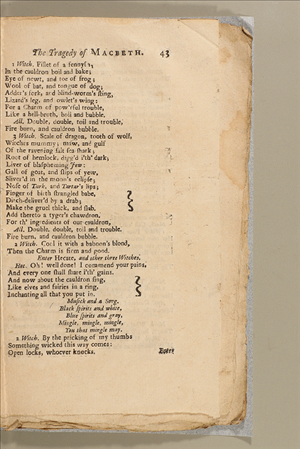 The Tragedy of MACBETH. 43
1 Witch. Fillet of a fenny snake,
In the cauldron boil and bake;
Eye of newt, and toe of frog;
Wool of bat, and tongue of dog;
Adder's fork, and blind-worm's sting,
Lizard's leg, and owlet's wing;
For a Charm of pow'rful trouble,
Like a hell-broth, boil and bubble.
All. Double, double, toil and trouble,
Fire burn, and cauldron bubble.
3 Witch. Scale of dragon, tooth of wolf,
Witches mummy; maw, and gulf
Of the ravening salt sea shark;
Root of hemlock, digg'd i'th' dark;
Liver of blaspheming Jew:
Gall of goat, and slips of yew,
Sliver'd in the moon's eclipse;
Nose of Turk, and Tartar's lips;
Finger of birth strangled babe,
Ditch-deliver'd by a drab;
Make the gruel thick, and slab.
Add thereto a tyger's chawdron,
For th' ingredients of our cauldron,
All. Double, double, toil and trouble,
Fire burn, and cauldron bubble.
2 Witch. Cool it with a baboon's blood,
Then the Charm is firm and good.
Enter Hecate, and other three Witches,
Hec. Oh! well done! I commend your pains,
And every one shall share i'th' gains.
And now about the cauldron sing,
Like elves and fairies in a ring,
Inchanting all that you put in.
Musick and a Song.
Black spirits and white,
Blue spirits and gray,
Mingle, mingle, mingle,
You that mingle may.
2 Witch. By the pricking of my thumbs
Something wicked this way comes:
Open locks, whoever knocks.
Enter